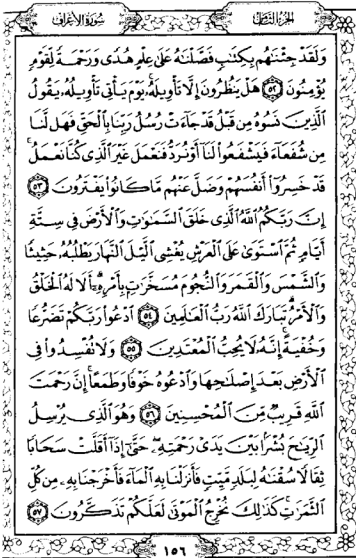 الجزء الثامن
سورة الأعراف
وَلَقَدْ جِئْنَٰهُم بِكِتَٰبٍ فَصَّلْنَٰهُ عَلَىٰ عِلْمٍ هُدًى وَرَحْمَةً لِّقَوْمٍ
يُؤْمِنُونَ ٥٢ هَلْ يَنظُرُونَ إِلَّا تَأْوِيلَهُۥ يَوْمَ يَأْتِى تَأْوِيلُهُۥ يَقُولُ
ٱلَّذِينَ نَسُوهُ مِن قَبْلُ قَدْ جَآءَتْ رُسُلُ رَبِّنَا بِٱلْحَقِّ فَهَل لَّنَا
مِن شُفَعَآءَ فَيَشْفَعُوا۟ لَنَآ أَوْ نُرَدُّ فَنَعْمَلَ غَيْرَ ٱلَّذِى كُنَّا نَعْمَلُ
قَدْ خَسِرُوٓا۟ أَنفُسَهُمْ وَضَلَّ عَنْهُم مَّا كَانُوا۟ يَفْتَرُونَ ٥٣
إِنَّ رَبَّكُمُ ٱللَّهُ ٱلَّذِى خَلَقَ ٱلسَّمَٰوَٰتِ وَٱلْأَرْضَ فِى سِتَّةِ
أَيَّامٍ ثُمَّ ٱسْتَوَىٰ عَلَى ٱلْعَرْشِ يُغْشِى ٱلَّيْلَ ٱلنَّهَارَ يَطْلُبُهُۥ حَثِيثًا
وَٱلشَّمْسَ وَٱلْقَمَرَ وَٱلنُّجُومَ مُسَخَّرَٰتٍۭ بِأَمْرِهِۦٓ أَلَا لَهُ ٱلْخَلْقُ
وَٱلْأَمْرُ تَبَارَكَ ٱللَّهُ رَبُّ ٱلْعَٰلَمِينَ ٥٤ ٱدْعُوا۟ رَبَّكُمْ تَضَرُّعًا
وَخُفْيَةً إِنَّهُۥ لَا يُحِبُّ ٱلْمُعْتَدِينَ ٥٥ وَلَا تُفْسِدُوا۟ فِى
ٱلْأَرْضِ بَعْدَ إِصْلَٰحِهَا وَٱدْعُوهُ خَوْفًا وَطَمَعًا إِنَّ رَحْمَتَ
ٱللَّهِ قَرِيبٌ مِّنَ ٱلْمُحْسِنِينَ ٥٦ وَهُوَ ٱلَّذِى يُرْسِلُ
ٱلرِّيَٰحَ بُشْرًۢا بَيْنَ يَدَىْ رَحْمَتِهِۦ حَتَّىٰٓ إِذَآ أَقَلَّتْ سَحَابًا
ثِقَالًا سُقْنَٰهُ لِبَلَدٍ مَّيِّتٍ فَأَنزَلْنَا بِهِ ٱلْمَآءَ فَأَخْرَجْنَا بِهِۦ مِن كُلِّ
ٱلثَّمَرَٰتِ كَذَٰلِكَ نُخْرِجُ ٱلْمَوْتَىٰ لَعَلَّكُمْ تَذَكَّرُونَ ٥٧
١٥٦